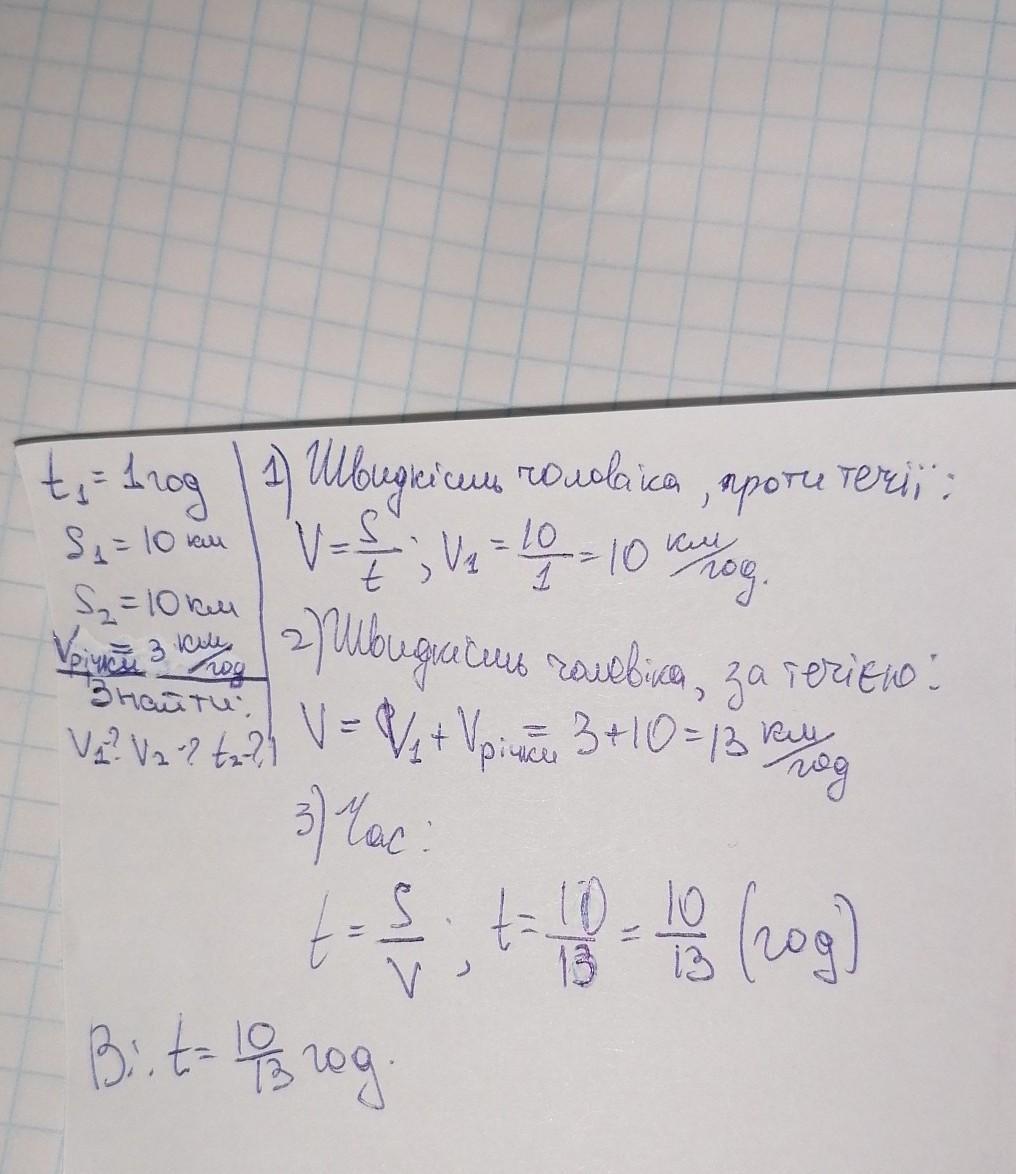 t₁ = 1 год
S₁ = 10 км
S₂ = 10 км
Vрічки = 3 км/год
Знайти:
V₁? V₂ -? t₂-?
1) Швидкість чоловіка, проти течії:
V = S/t ; V₁ = 10/1 = 10 км/год.
2) Швидкість чоловіка, за течією:
V = V₁ + Vрічки = 3 + 10 = 13 км/год
3) Час:
t = S/V ; t = 10/13 = 10/13 (год)
Ві: t = 10/13 год.